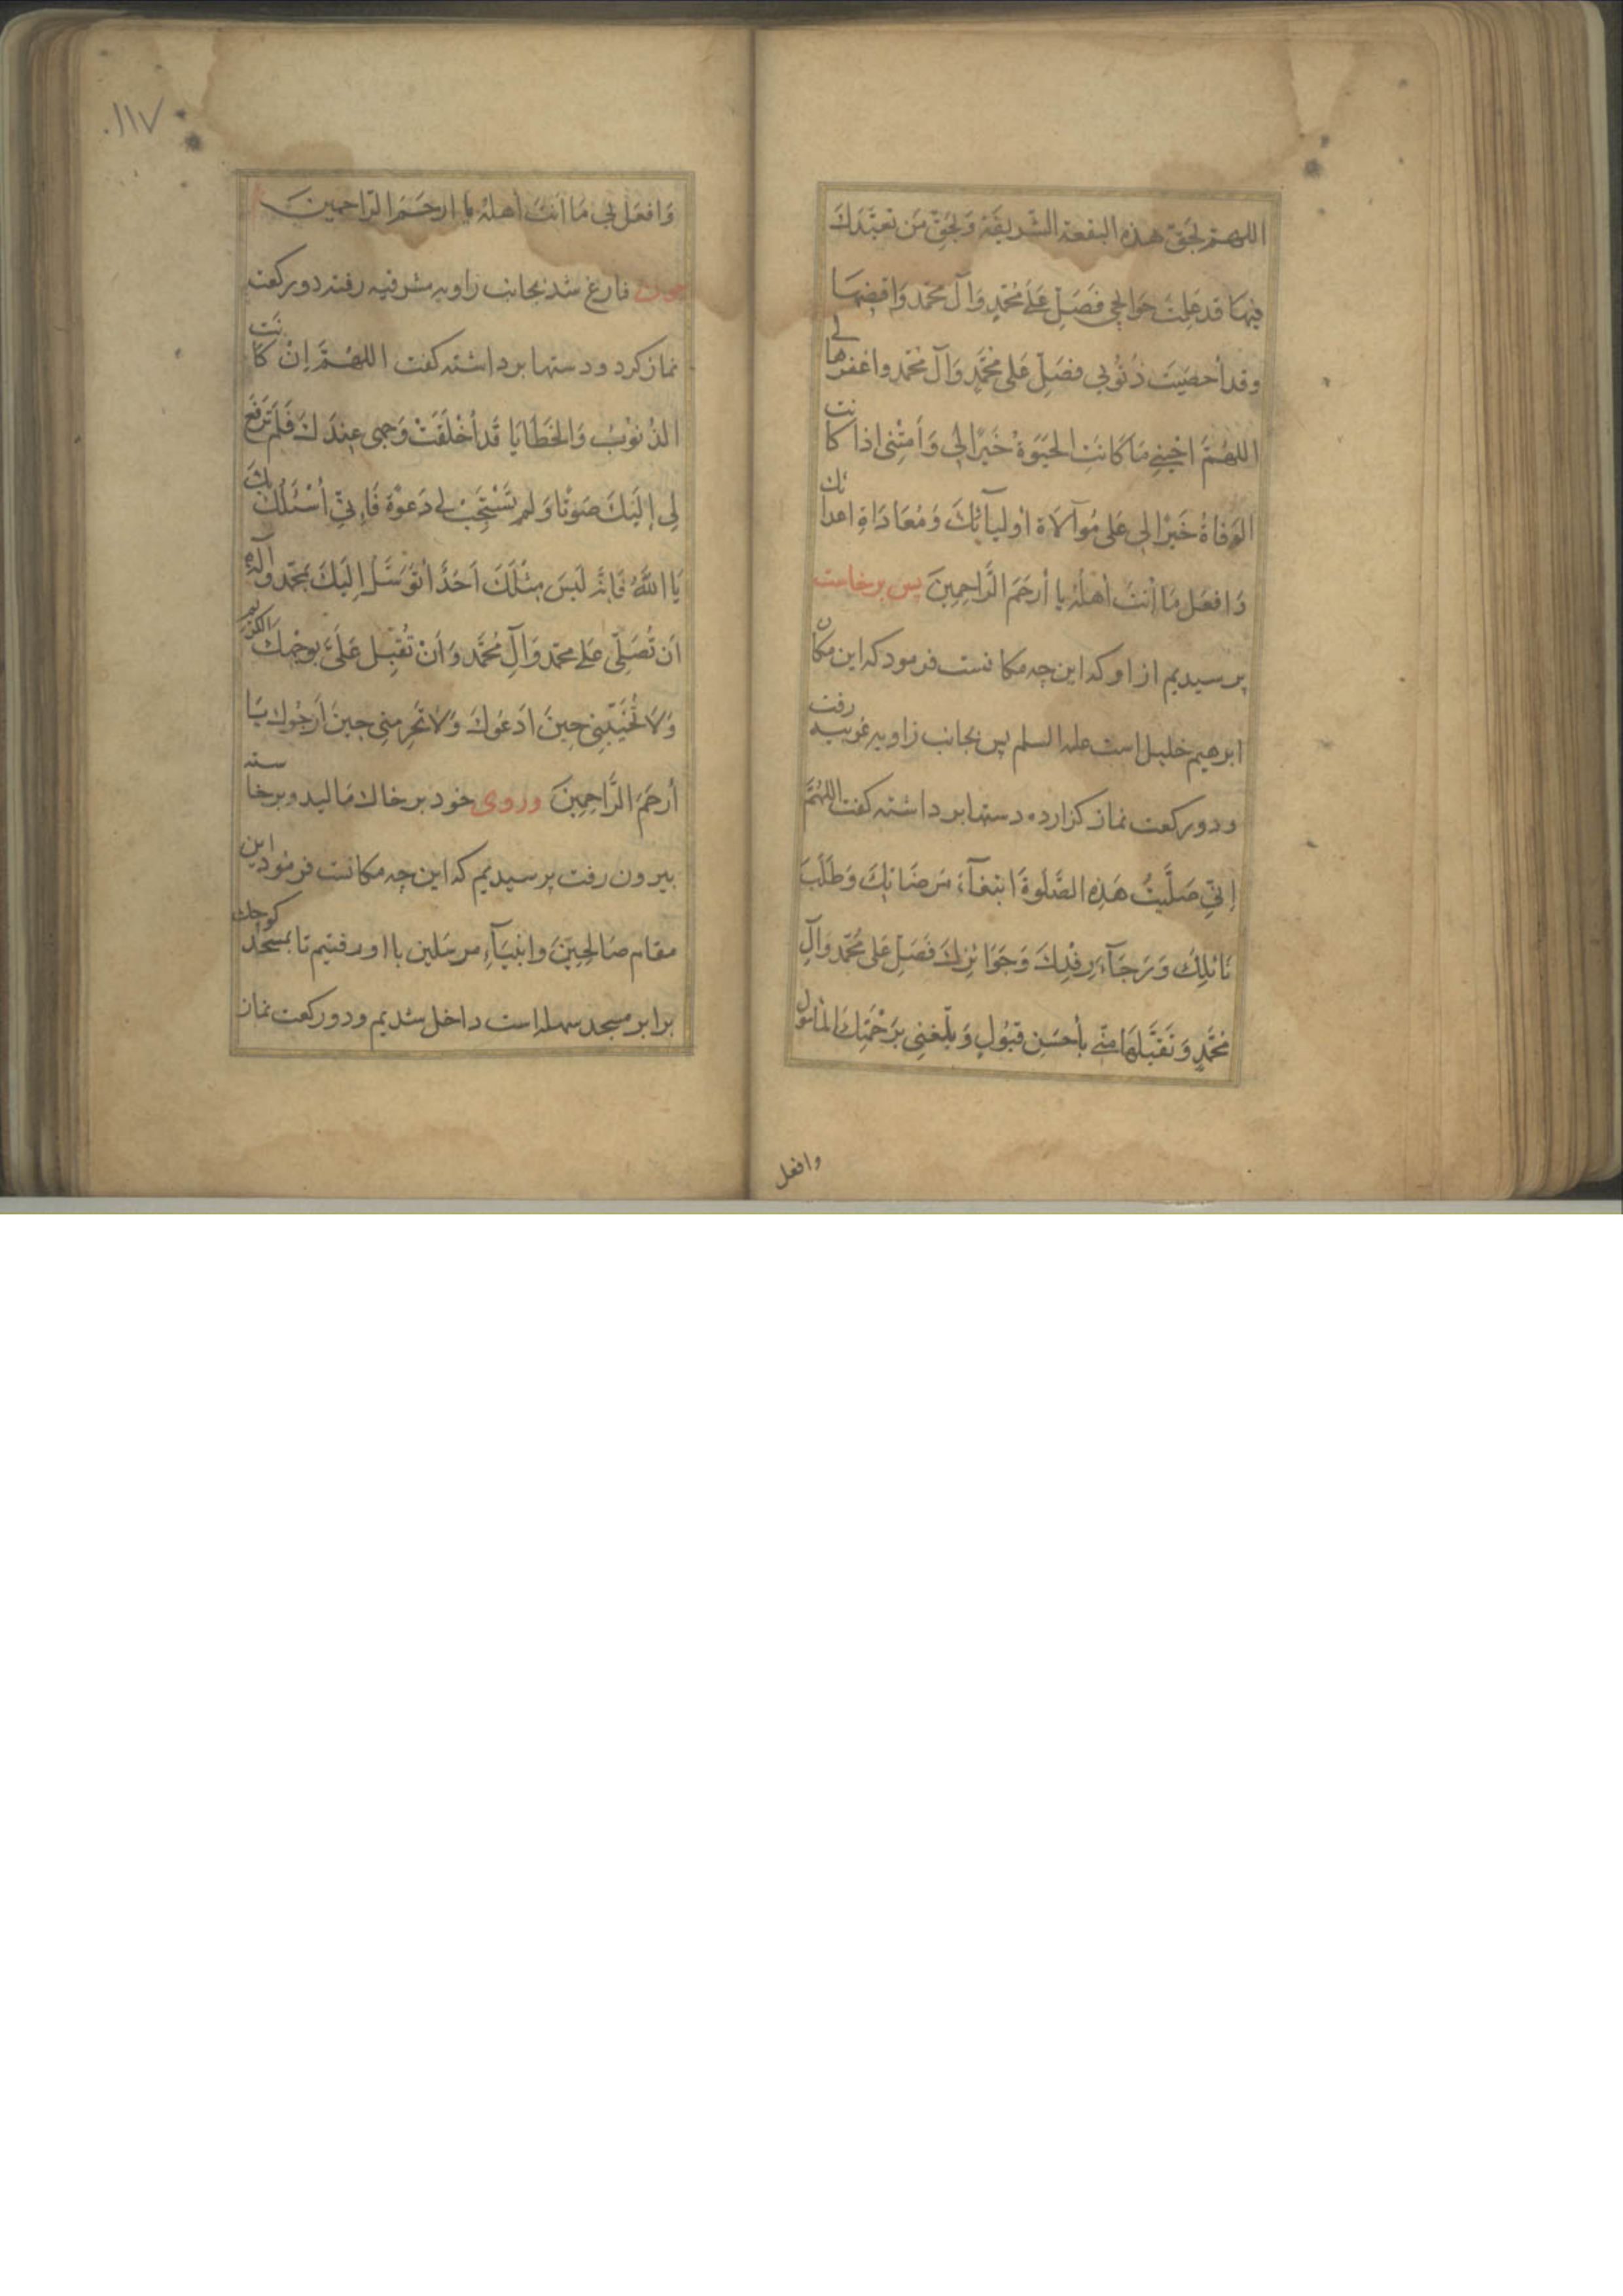 اللهم بحق هذه البقعة الشريفة وبحق من تعبدك
فيها قد علمت حوائجي فصل على محمد وآل محمد واقضها
وقد أحصيت ذنوبي فصل على محمد وآل محمد واغفرها لي
اللهم احيني ما كانت الحيوة خيرا لي وامتني اذا كانت
الوفاة خيرا لي على موالاة أوليائك ومعاداة اعدائك
وافعل ما أنت أهله يا أرحم الراحمين پس برخاست
پرسيديم از او كه اين چه مكانست فرمود كه اين مكان
ابرهيم خليل است عليه السلم پس بجانب زاويه غربيه رفت
ودو ركعت نماز كزارده دستها برداشته كفت اللهم
إني صليت هذه الصلوة ابتغآء مرضاتك وطلب
نائلك ورجآء رفدك وجوائزك فصل على محمد وآل
محمد وتقبلها مني بأحسن قبول وبلغني برحمتك المأمول
وافعل
١١٧
وافعل بي ما انت أهله يا ارحم الراحمين
چون فارغ شد بجانب زاويه مشرقيه رفته دو ركعت
نماز كرد ودستها برداشته كفت اللهم ان كانت
الذنوب والخطايا قد أخلقت وجهي عندك فلم ترفع
لي إليك صوتا ولم تستجب لي دعوة فإني أسئلك بك
يا الله فانه ليس مثلك احد أتوسل إليك بمحمد وآله
ان تصلي على محمد وآل محمد وأن تقبل علي بوجهك الكريم
ولا تخيبني حين ادعوك ولا تحرمني حين أرجوك يا
أرحم الراحمين وروى خود بر خاك ماليد وبرخاسته
بيرون رفت پرسيديم كه اين چه مكانست فرمود اين
مقام صالحين وانبيآء مرسلين با او رفتيم تا بمسجد كوچك
برابر مسجد سهله است داخل شديم ودو ركعت نماز